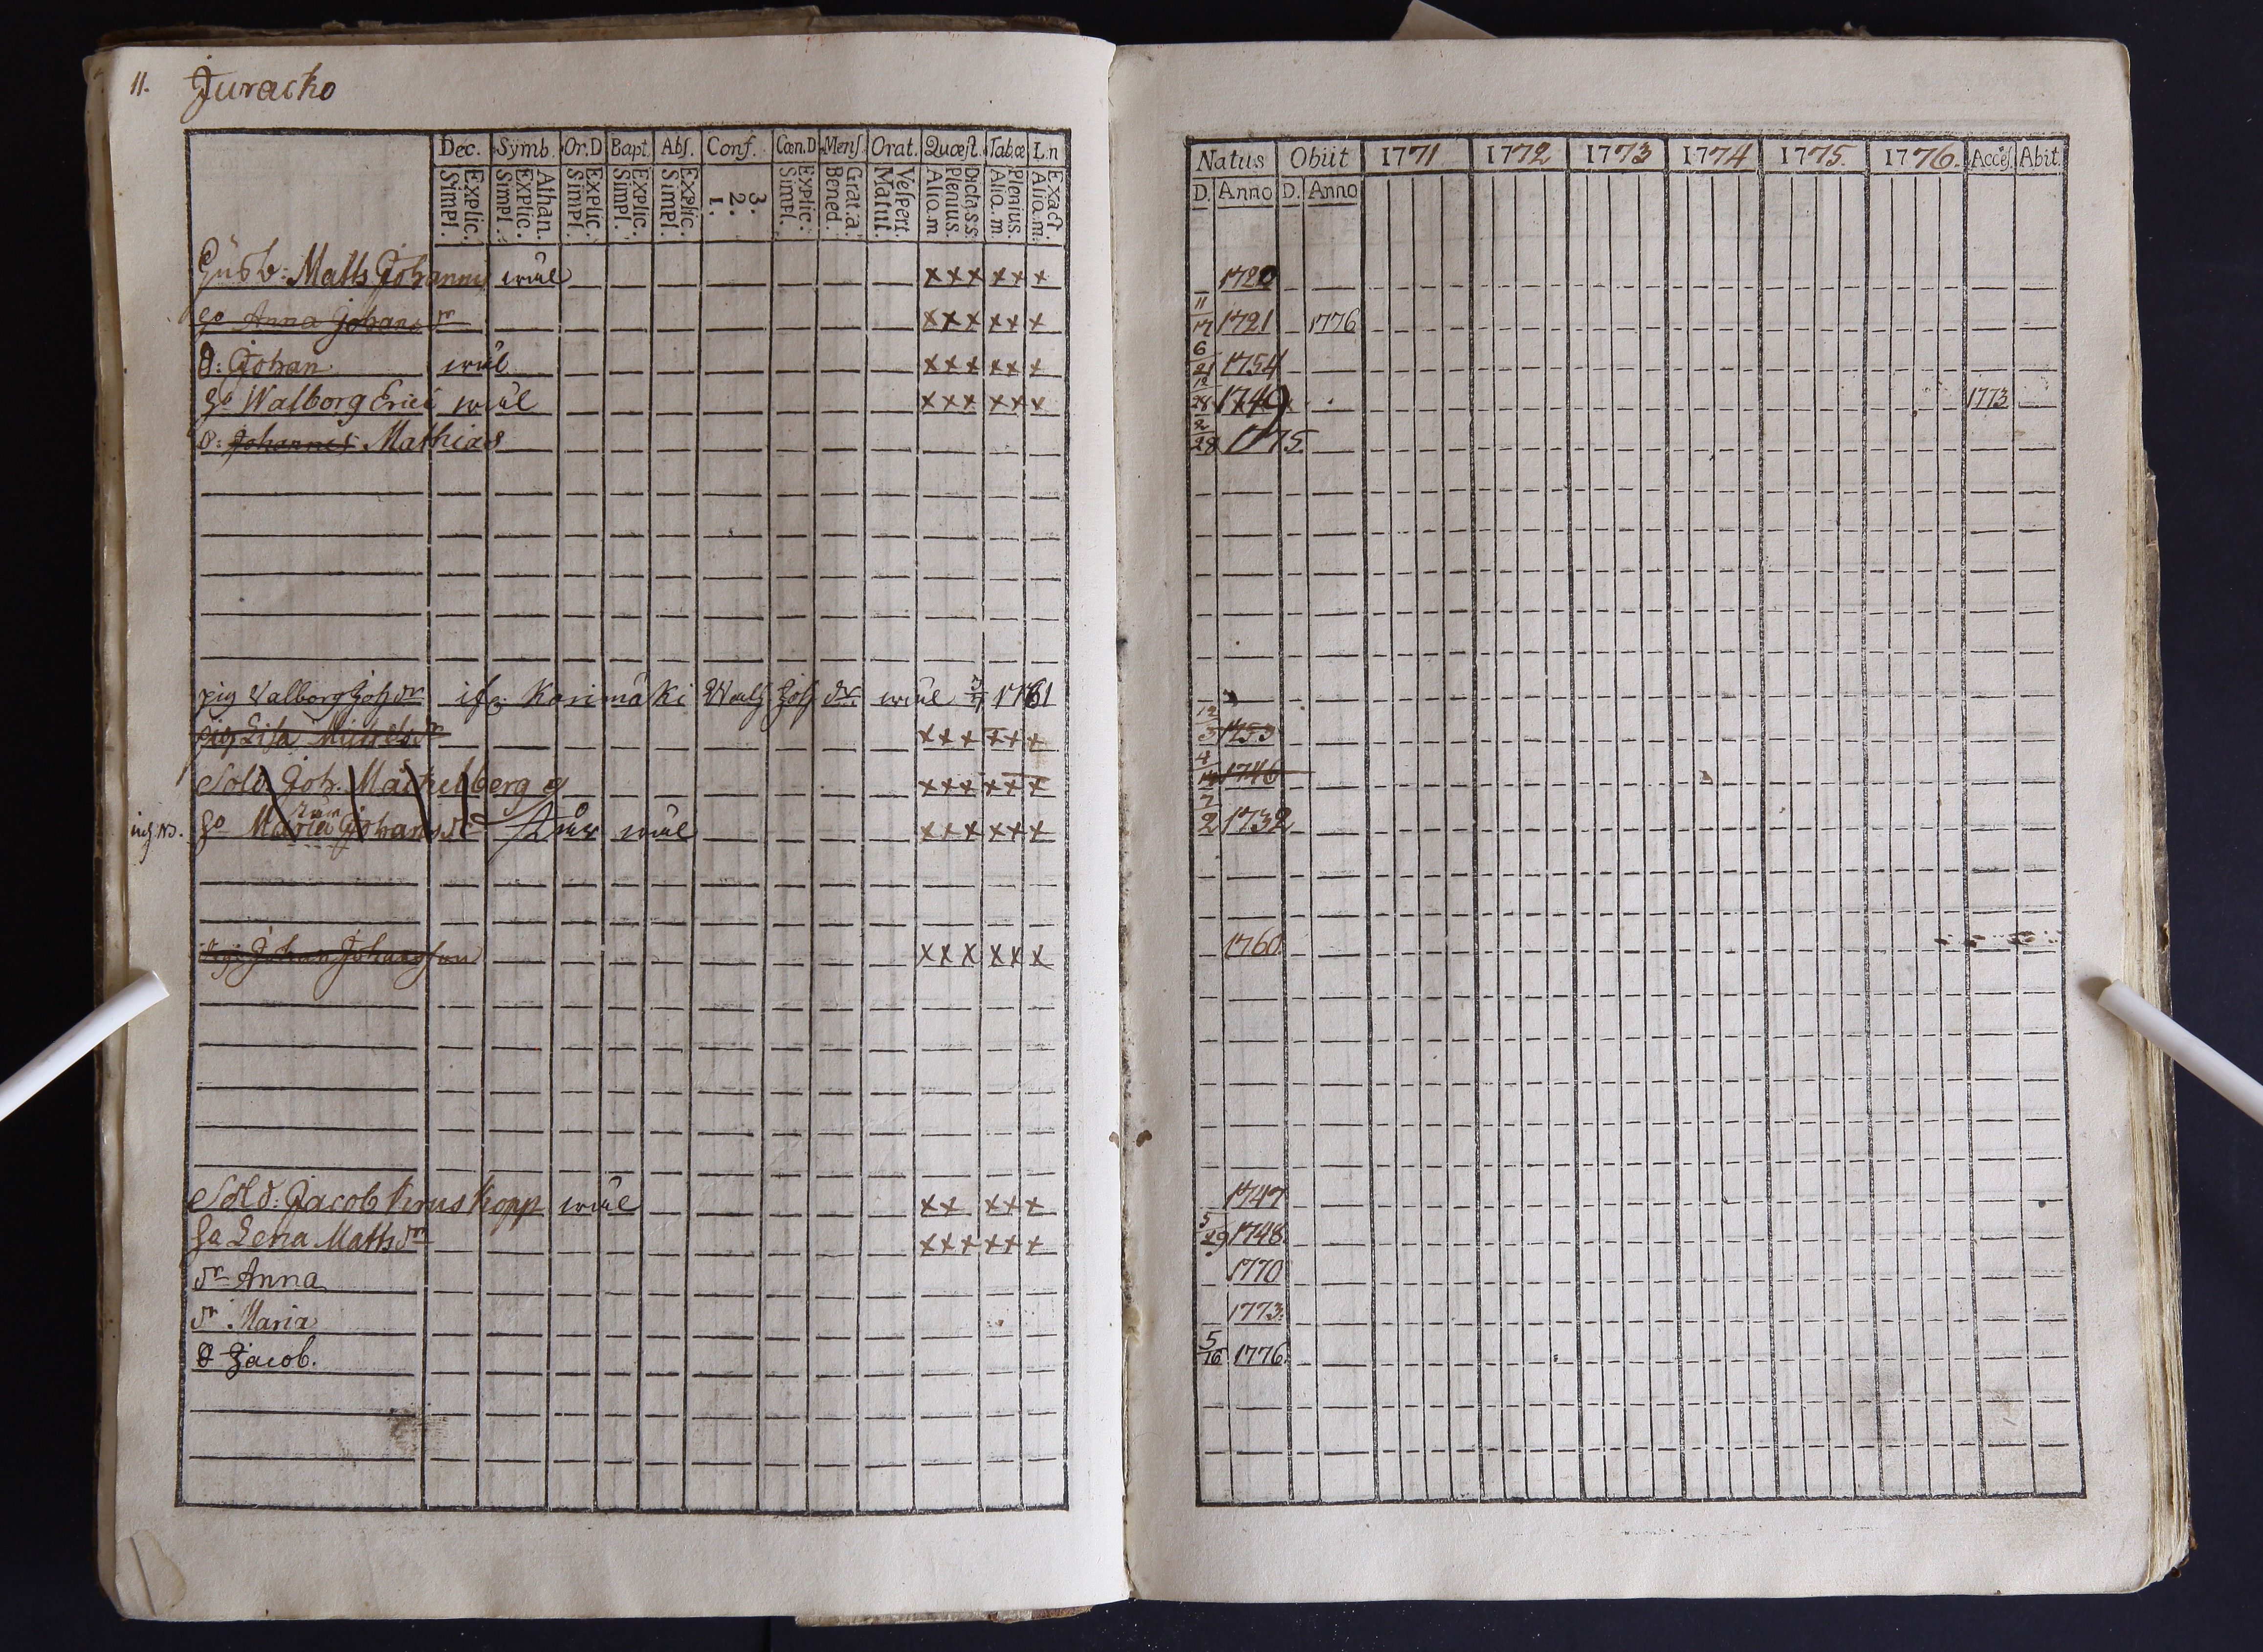 11. Juracko
Dec. Symb. Or.D Bapt. Abſ. Conf. Cœn.D Menſ. Orat. Quæſt. Tabœ L.n
Explic. Simpl. Athan. Explic. Simpl. Explic. Simpl. Explic. Simpl. Explic. Simpl. 3. 2. 1. Explic. Simpl. Grat.a. Bened. Veſpert. Matut. Dicta.s.s. Plenius. Aliq.m Plenius. Aliq.m. Exact. Aliq.m.
Matts Johanns x x x x x x
Anna Johans dr x x x x x x
Johan x x x x x x
Walborg Erici x x x x x x
Johannes Mathias
pig Valborg Joh dr Karimäki Joh dr 1781
pig Lisa Michelsdr x x x x x x
Sold. Joh. Machelberg x x x x x x
Maria Johans dr x x x x x x
Johan Johansson x x x x x x
Sold: Jacob Kruskopp x x x x x
Lena Matts dr x x x x x x
dr Anna
dr Maria
Jacob.
Natus Obiit 1771 1772 1773 1774 1775 1776. Acceſ. Abit.
D. Anno D. Anno
1720
11/17 1721 1776
6/21 1754
12/28 1749 1773
2/28 1775.
12/3 1753
4/14 1746
7/2 1732
1760
1747
5/29 1748
1770
1773.
5/16 1776.